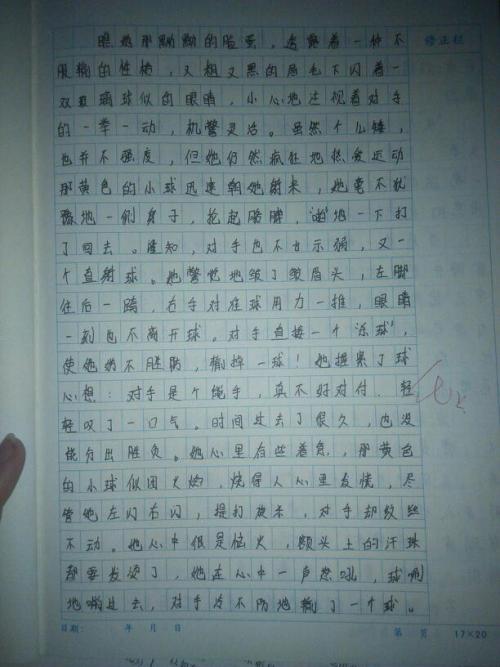 瞧她那黝黝的脸蛋，透露着一种不
服输的性格，又粗又黑的眉毛下闪着一
双玻璃球似的眼睛，小心地注视着对手
的一举一动，机警灵活。虽然个儿矮，
也并不强度，但她仍然疯狂地热爱运动
那黄色的小球迅速朝她射来，她毫不犹
豫地一侧身子，抡起胳膊，“啪”地一下打
了回去。谁知，对手也不甘示弱，又一
个直射球。她警觉地皱了皱眉头，左脚
往后一跨，右手对准球用力一推，眼睛
一刻也不离开球。对手直接一个“冻球”，
使她防不胜防，输掉一球！她捏累了球
心想：对手是个绳手，真不好对付，轻
轻叹了一口气。时间过去了很久，也没
能分出胜负。她心里有些着急，那黄色
的小球似团火焰，烧得人心里发慌，尽
管她左闪右闪，提打放杀，对手却纹丝
不动。她心中很是恼火，额头上的汗珠
都要发烫了，她在心中一声怒吼，球啪
地啪过去，对手冷不防地输了一个球。
修正栏
日期： 年 月 日
第 页 17×20